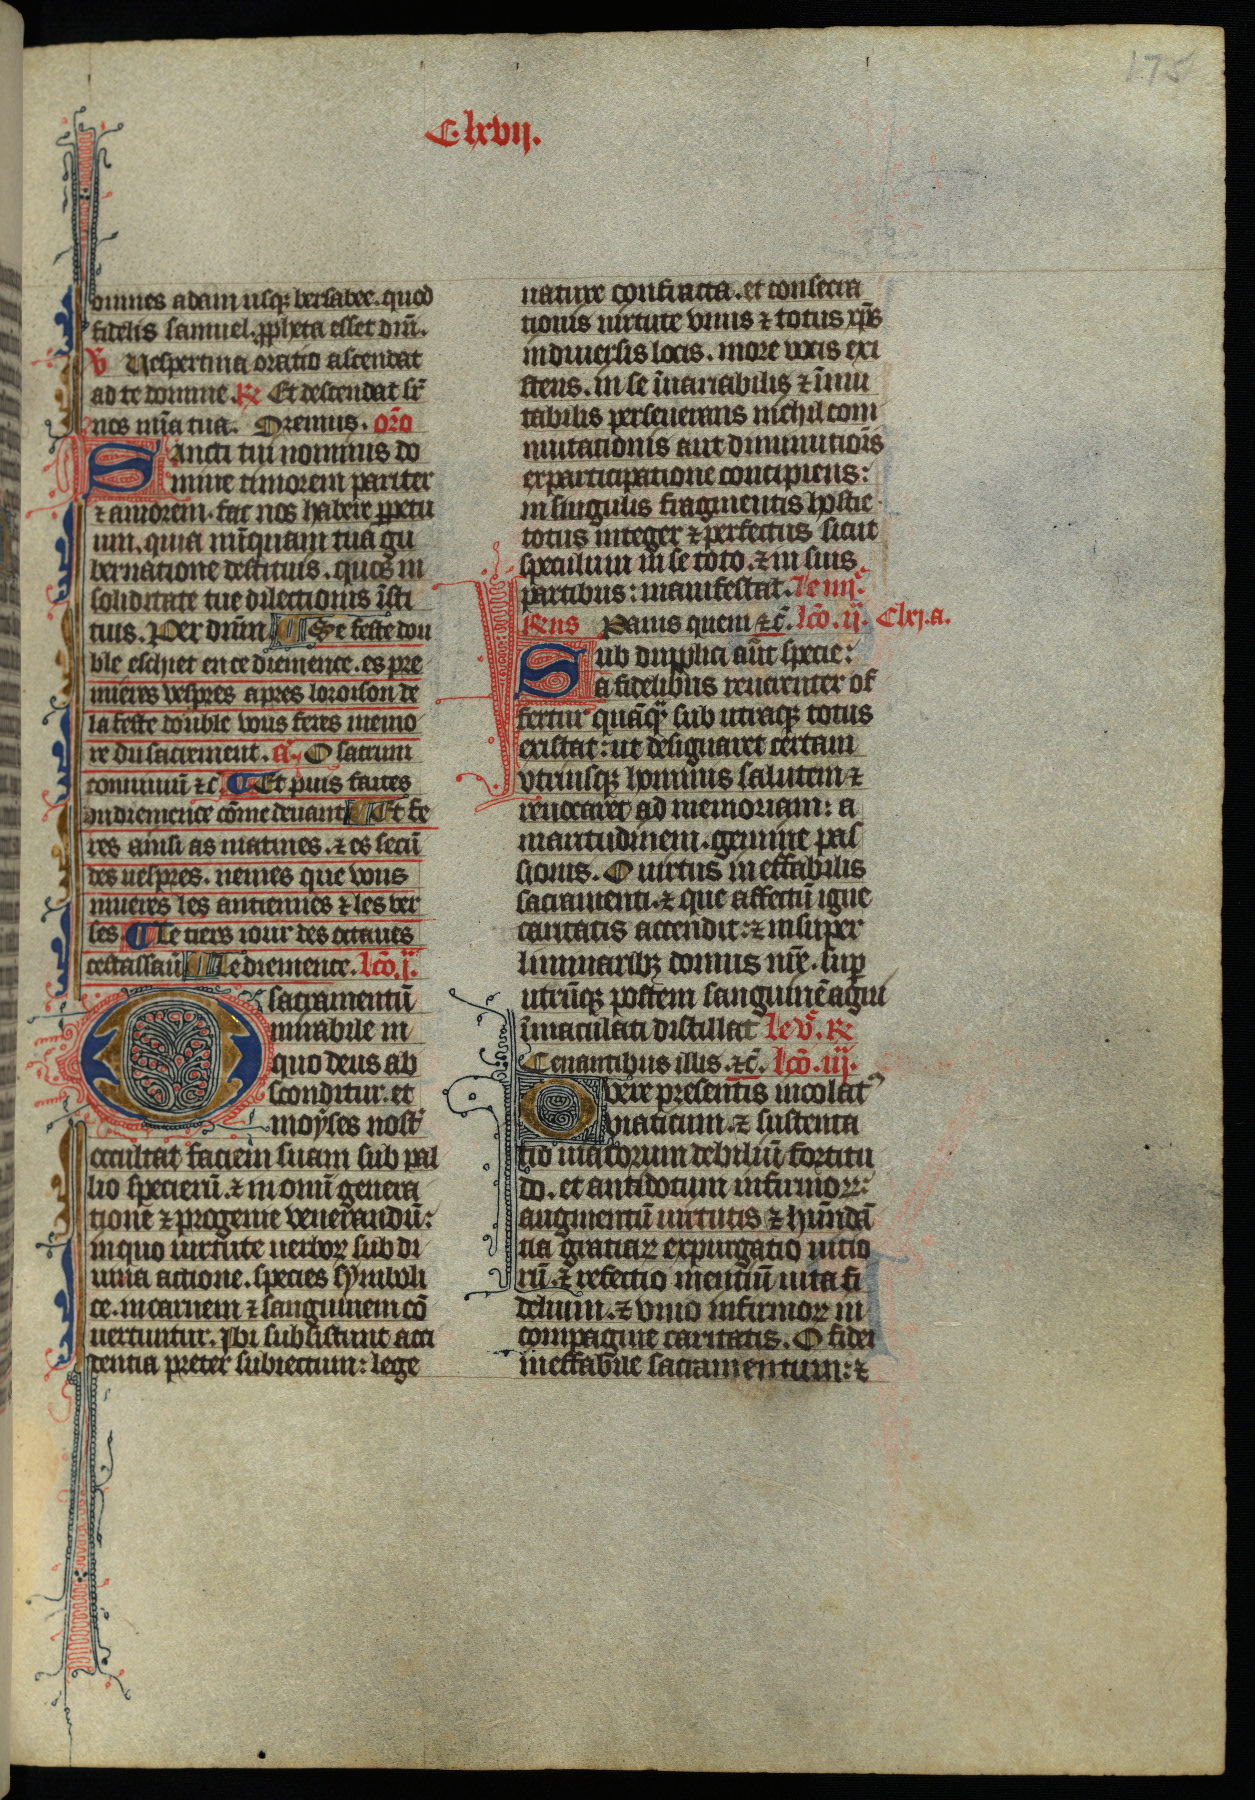 175
C. lxvij.
omnes adam usqꝫ bersabee. quod
fidelis samuel. ꝓpheta esset dnī.
℣ Vespertina oratio ascendat
ad te domine. ℟ Et descendat sr̄
nos mīa tua. Oremus. orō
Sancti tui nominis do
mine timorem pariter
⁊ amorem. fac nos habere ꝑpetu
um. quia nūquam tua gu
bernatione destituis. quos in
soliditate tue dilectionis īsti
tuis. Per dnm̄ ¶ Se feste dou
ble eschiet en ce diemence. es pre
mieres vespres apres loroison de
la feste double vous feres memo
re du sacrement. a. O sacrum
conuiuiū ⁊c̄ ¶ Et puis faites
du diemence cōme deuant ¶ Et fe
res ainsi as matines. ⁊ es secūn
des uespres. nemes que vous
mueres les antiennes ⁊ les ver
ses ¶ Le tiers iour des octaues
cest assauō ¶ Le diemence. lcō. j.
O sacramentū
mirabile in
quo deus ab
sconditur. et
moyses nostʳ
occultat faciem suam sub pal
lio specierū. ⁊ in omnī genera
tione ⁊ progenie venerandū:
in quo uirtute uerboꝝ sub di
uina actione. species symboli
ce. in carnem ⁊ sanguinem cō
uertuntur. Ibi subsistunt acci
dentia preter subiectum: lege
nature confracta. et consecra
tionis uirtute vnus ⁊ totus xp̄s
in diuersis locis. more vocis exi
stens. in se īuariabilis ⁊ īmu
tabilis perseuerans nichil com
mutationis aut diminutiōis
ex participatione concipiens:
in singulis fragmentis hostie
totus integer ⁊ perfectus sicut
speculum in se toto. ⁊ in suis
partibus: manifestat. Le iiij.ᵉ
Rens Panis quem ⁊c̄. lcō. ij. Clxj. a.
Sub dupplici aūt specie:
a fidelibus reuerenter of
fertur quāqꝫ sub utraqꝫ totus
existat: ut designaret certam
vtriusqꝫ hominis salutem ⁊
reuocaret ad memoriam: a
maritudinem. gemine pas
sionis. O uirtus ineffabilis
sacramenti. ⁊ que affectū igne
caritatis accendit: ⁊ insuper
liminaribꝫ domus nr̄e. suꝑ
utrūqꝫ postem sanguinē agni
īmaculati distillat Le v.ᵉ ℟
Cenantibus illis. ⁊c̄. lcō. iij.
O vere presentis incolatꝰ
viaticum. ⁊ sustenta
tio maiorum debiliū fortitu
do. et antidotum infirmoꝝ:
augmentū uirtutis ⁊ hūndā
tia gratiaꝝ expurgatio uitio
rū. ⁊ refectio mentiū uita fi
delium. ⁊ vnio infirmoꝝ in
compagine caritatis. O fidei
ineffabile sacramentum: ⁊